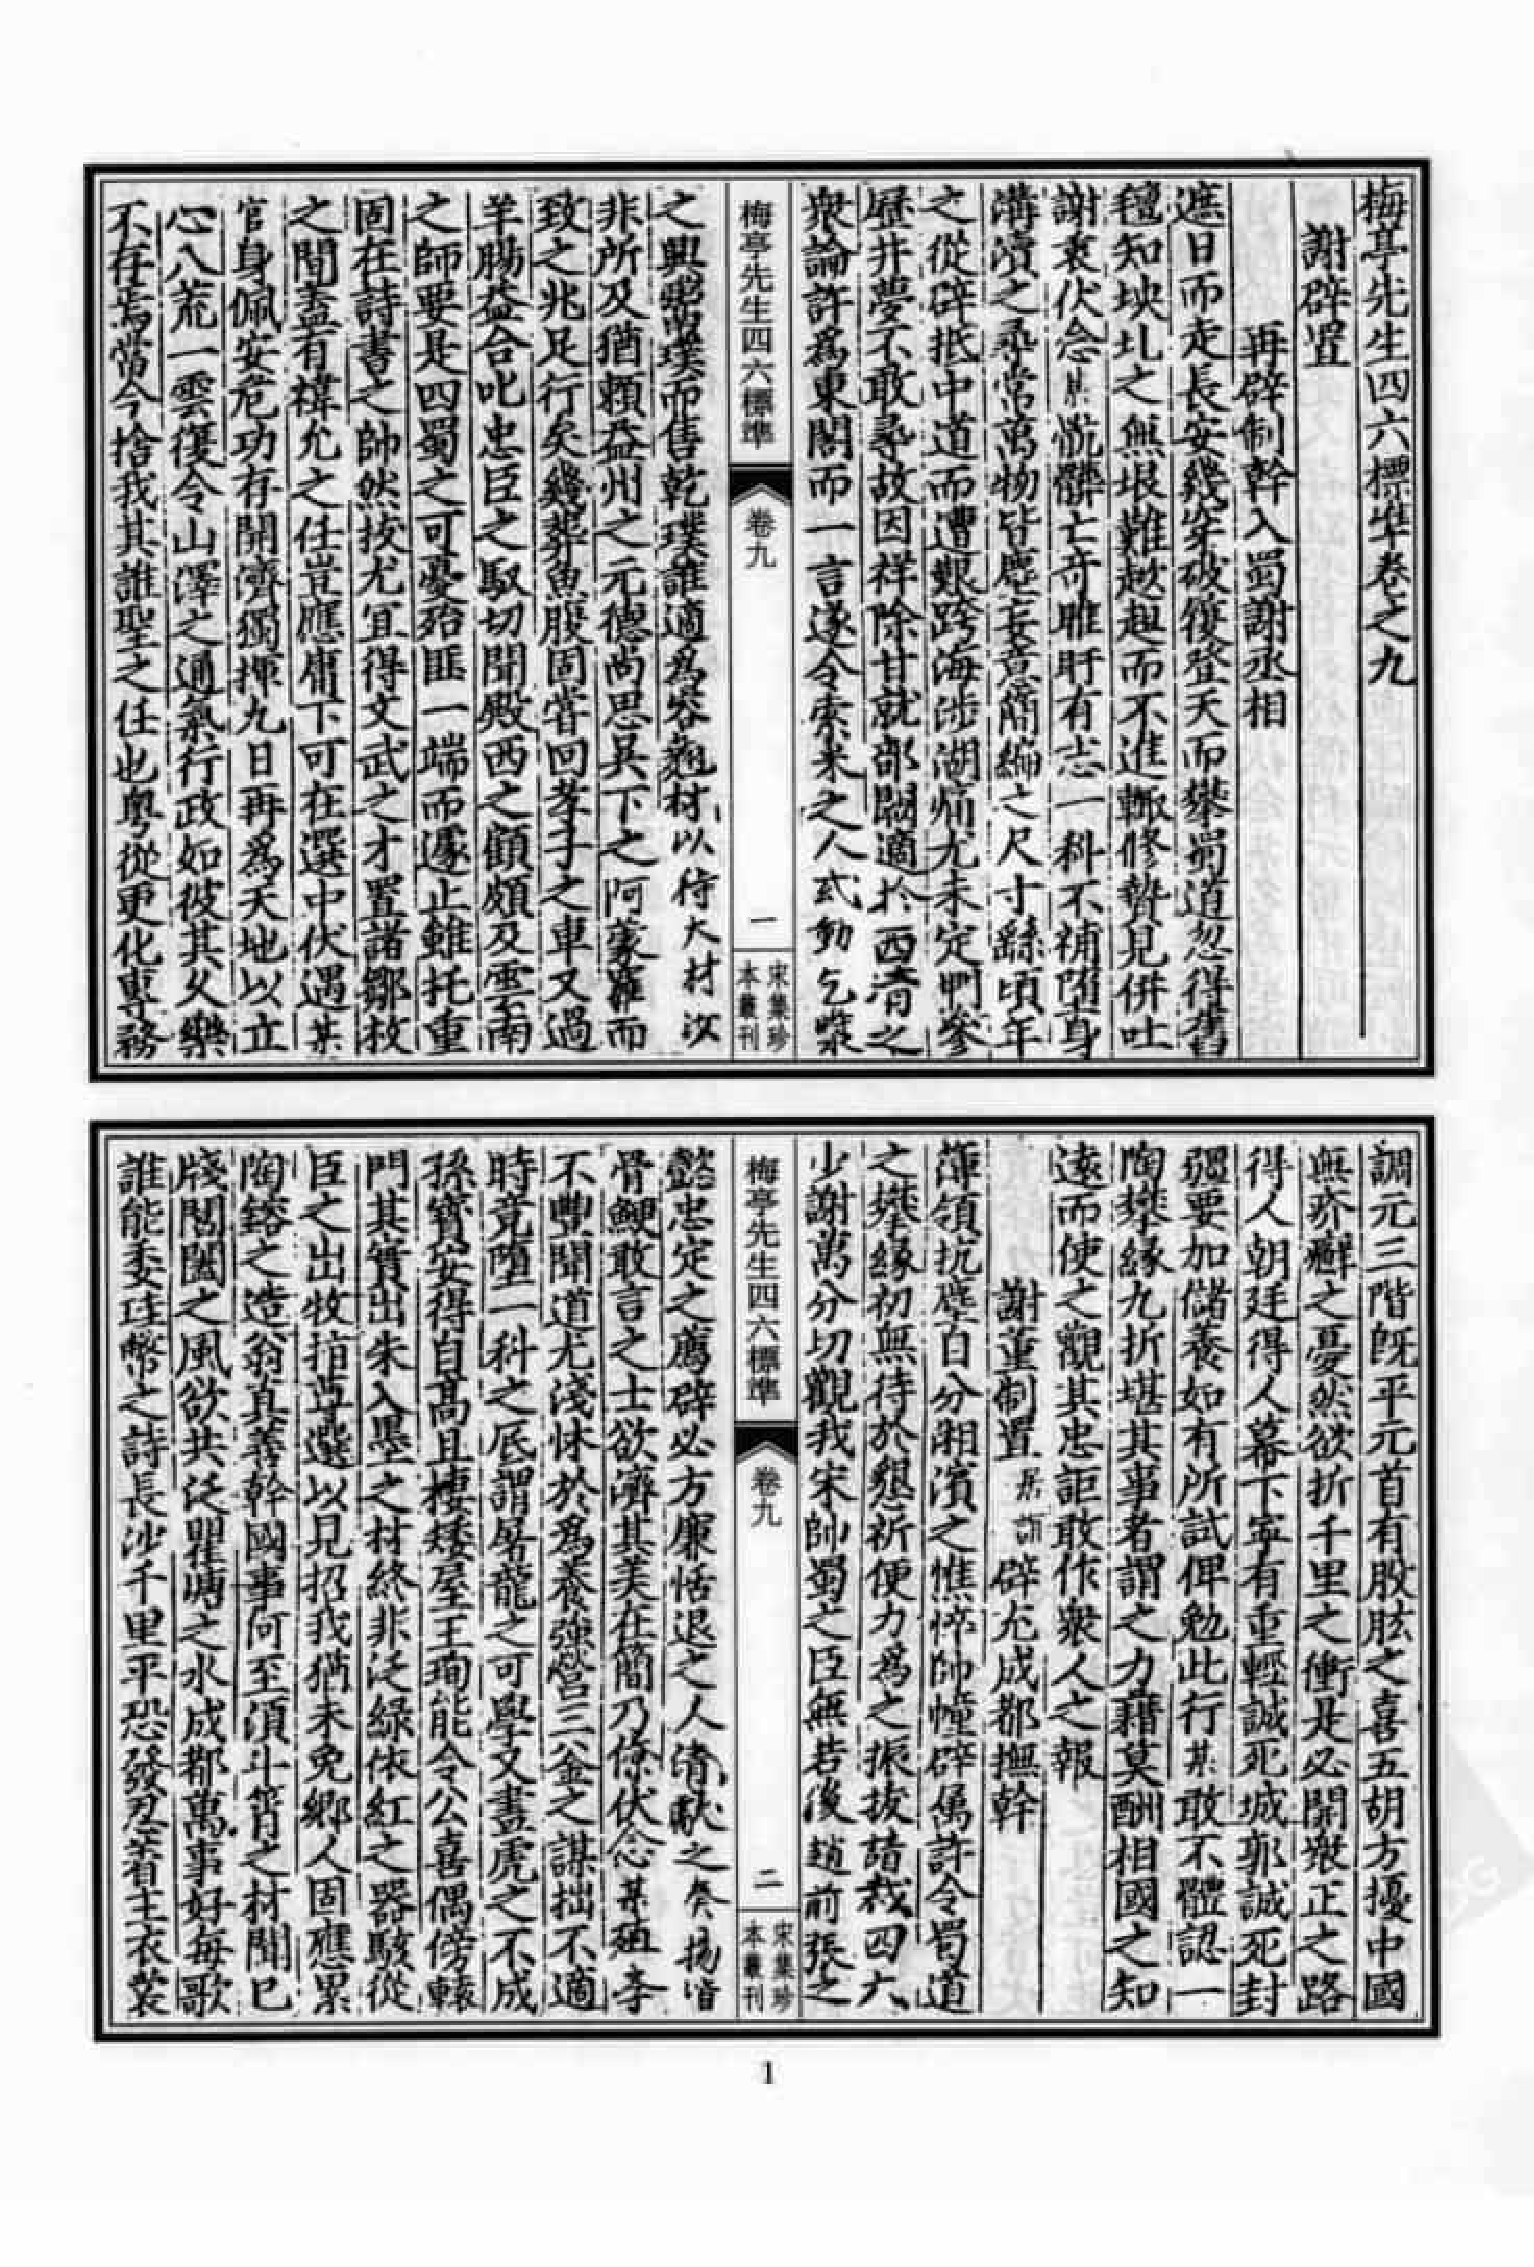 梅亭先生四六標準卷之九
謝辟置
再辟制幹入蜀謝丞相
遮日而走長安幾穿破履登天而攀蜀道忽得舊
氊知坱圠之無垠難趑趄而不進輙修贄見併吐
謝衷伏念某骯髒亡奇睢盱有志一科不補陷身
溝瀆之尋常萬物皆塵妄意簡編之尺寸繇頃年
之從辟抵中道而遭艱跨海涉湖痛尤未定捫參
歷井夢不敢尋故因祥除甘就部闕適於西清之
衆論許為東閣而一言遂令索米之人或動乞漿
梅亭先生四六標準
卷九
一
宋集珍
本叢刊
之興鬻璞而售乾璞誰適為容
材以待大材汝
非所及猶賴益州之元德尚思吳下之阿蒙羅而
致之兆足行矣幾葬魚腹固嘗回孝子之車又過
羊腸益合叱忠臣之馭切聞殿西之顧頗及雲南
之師要是四蜀之可憂殆匪一端而遽止雖托重
固在詩書之帥然拔尤宜得文武之才置諸鄒枚
之間蓋有禕允之任豈應庸下可在選中伏遇某
官身佩安危功存開濟獨揮九日再為天地以立
心八荒一雲復令山澤之通氣行政如彼其久樂
不存焉當今捨我其誰聖之任也粤從更化專務
調元三階旣平元首有股肱之喜五胡方擾中國
無疥癬之憂然欲折千里之衝是必開衆正之路
得人朝廷得人幕下寧有重輕誠死城郭誠死封
疆要加儲養如有所試俾勉此行某敢不體認一
陶攀緣九折堪其事者謂之力藉莫酬相國之知
遠而使之觀其忠詎敢作衆人之報
謝董制置居誼辟充成都撫幹
蓴領抗塵百分湘濱之憔悴帥幢辟屬許令蜀道
之攀緣初無待於懇祈便力為之振拔請裁四六
少謝萬分切觀我宋帥蜀之臣無若後趙前張之
梅亭先生四六標準
卷九
二
宋集珍
本叢刊
懿忠定之薦辟必方廉恬退之人清獻之奏揚皆
骨鯁敢言之士欲濟其美在簡乃僚伏念某殖學
不豐聞道尤淺怵於為養強營三釜之謀拙不適
時竟墮一科之底謂屠龍之可學又畫虎之不成
孫寶安得自高且棲矮屋王珣能令公喜偶傍轅
門其實出朱入墨之材終非泛綠依紅之器駭從
臣之出牧掊並選以見招我猶未免鄉人固應累
陶鎔之造翁真善幹國事何至湏斗筲之材聞已
牋閶闔之風欲共泛瞿塘之水成都萬事好每歌
誰能委珪幣之詩長沙千里平恐發忍著主衣裳